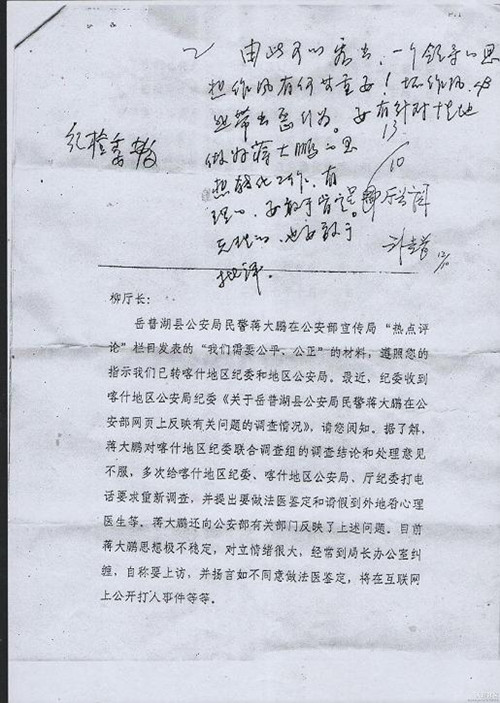 由此可以看出，一个领导的思
想作风有何等重要！坏作风，必
然带出恶行为。要有针对性地
纪检委
做好蒋大鹏的思
想转化工作，有
理的，要敢于肯定。
无理的，也要敢于
批评。
13/10
12/10
柳厅长：
岳普湖县公安局民警蒋大鹏在公安部宣传局“热点评
论”栏目发表的“我们需要公平、公正”的材料，遵照您的
指示我们已转喀什地区纪委和地区公安局。最近，纪委收到
喀什地区公安局纪委《关于岳普湖县公安局民警蒋大鹏在公
安部网页上反映有关问题的调查情况》，请您阅知。据了解，
蒋大鹏对喀什地区纪委联合调查组的调查结论和处理意见
不服，多次给喀什地区纪委、喀什地区公安局、厅纪委打电
话要求重新调查，并提出要做法医鉴定和请假到外地看心理
医生等，蒋大鹏还向公安部有关部门反映了上述问题。目前
蒋大鹏思想极不稳定，对立情绪很大，经常到局长办公室纠
缠，自称要上访，并扬言如不同意做法医鉴定，将在互联网
上公开打人事件等等。